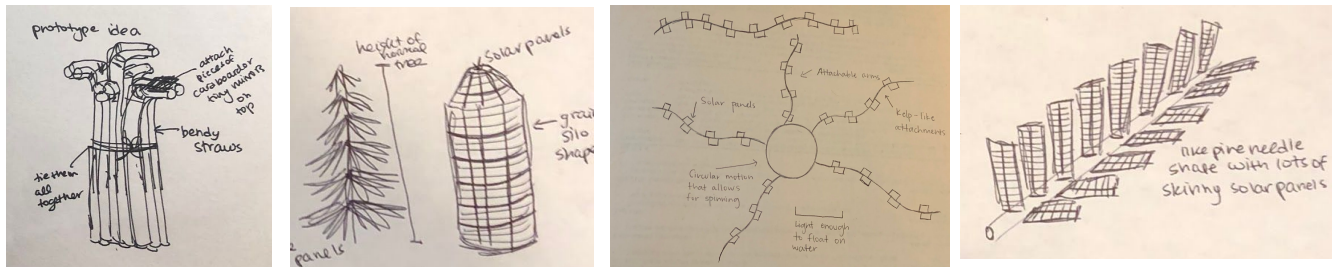 prototype idea
attach
pieces of
cardboard or
tiny mirrors
on
top
bendy
straws
tie them
all
together
height of
normal
tree
solar panels
grain
silo
shape
panels
Attachable arms
Solar panels
Kelp-like
attachments
Circular motion
that allows
for spinning
Light enough
to float on
water
like pine needle
shape with lots of
skinny solar panels